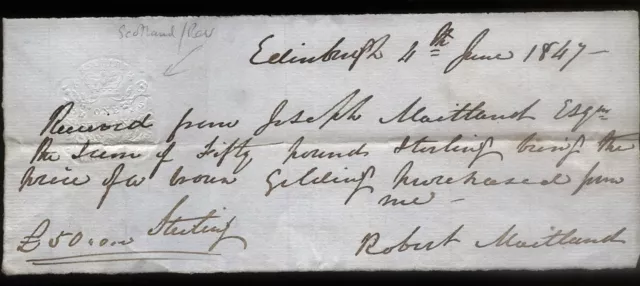 Scotland/Rev
Edinburgh 4th June 1847 -
Received from Joseph Maitland Esqre
the Sum of Fifty pounds Sterling being the
price of a broun Gelding purchased from
me -
£50.0.0 Sterling
Robert Maitland